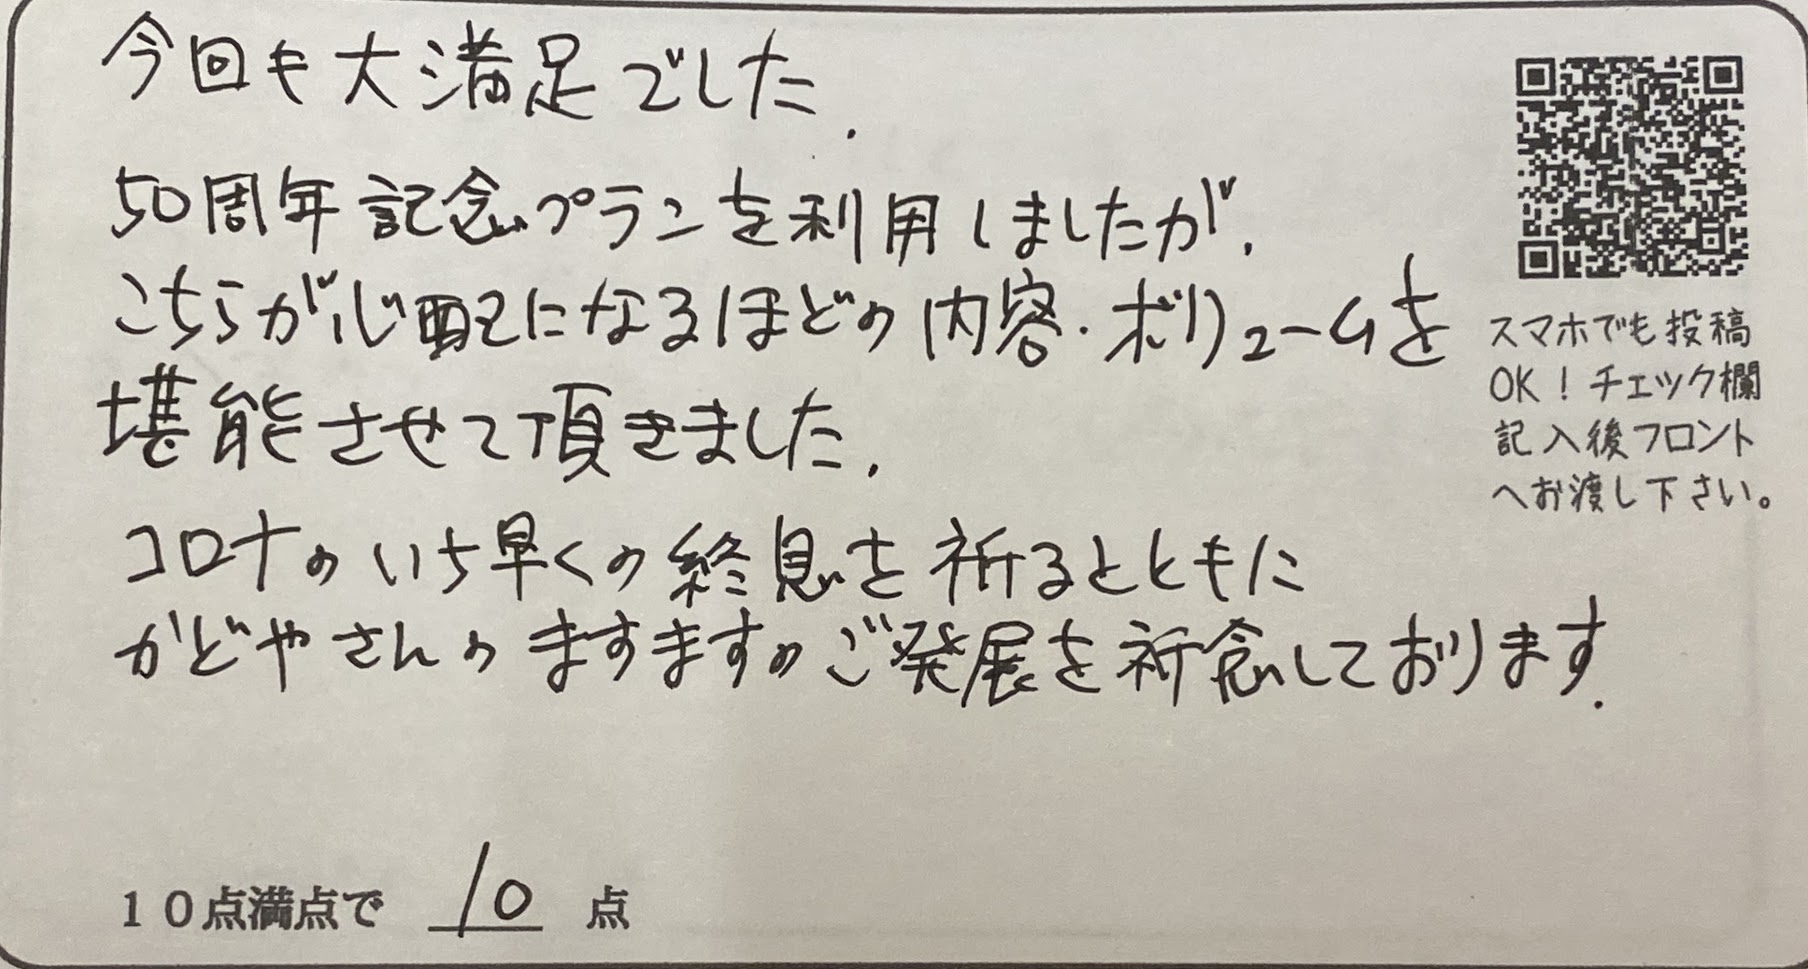 今回も大満足でした.
50周年記念プランを利用しましたが,
こちらが心配になるほどの内容・ボリュームを
堪能させて頂きました.
コロナのいち早くの終息を祈るとともに
かどやさんのますますのご発展を祈念しております.
スマホでも投稿
OK！チェック欄
記入後フロント
へお渡し下さい。
１０点満点で 10 点